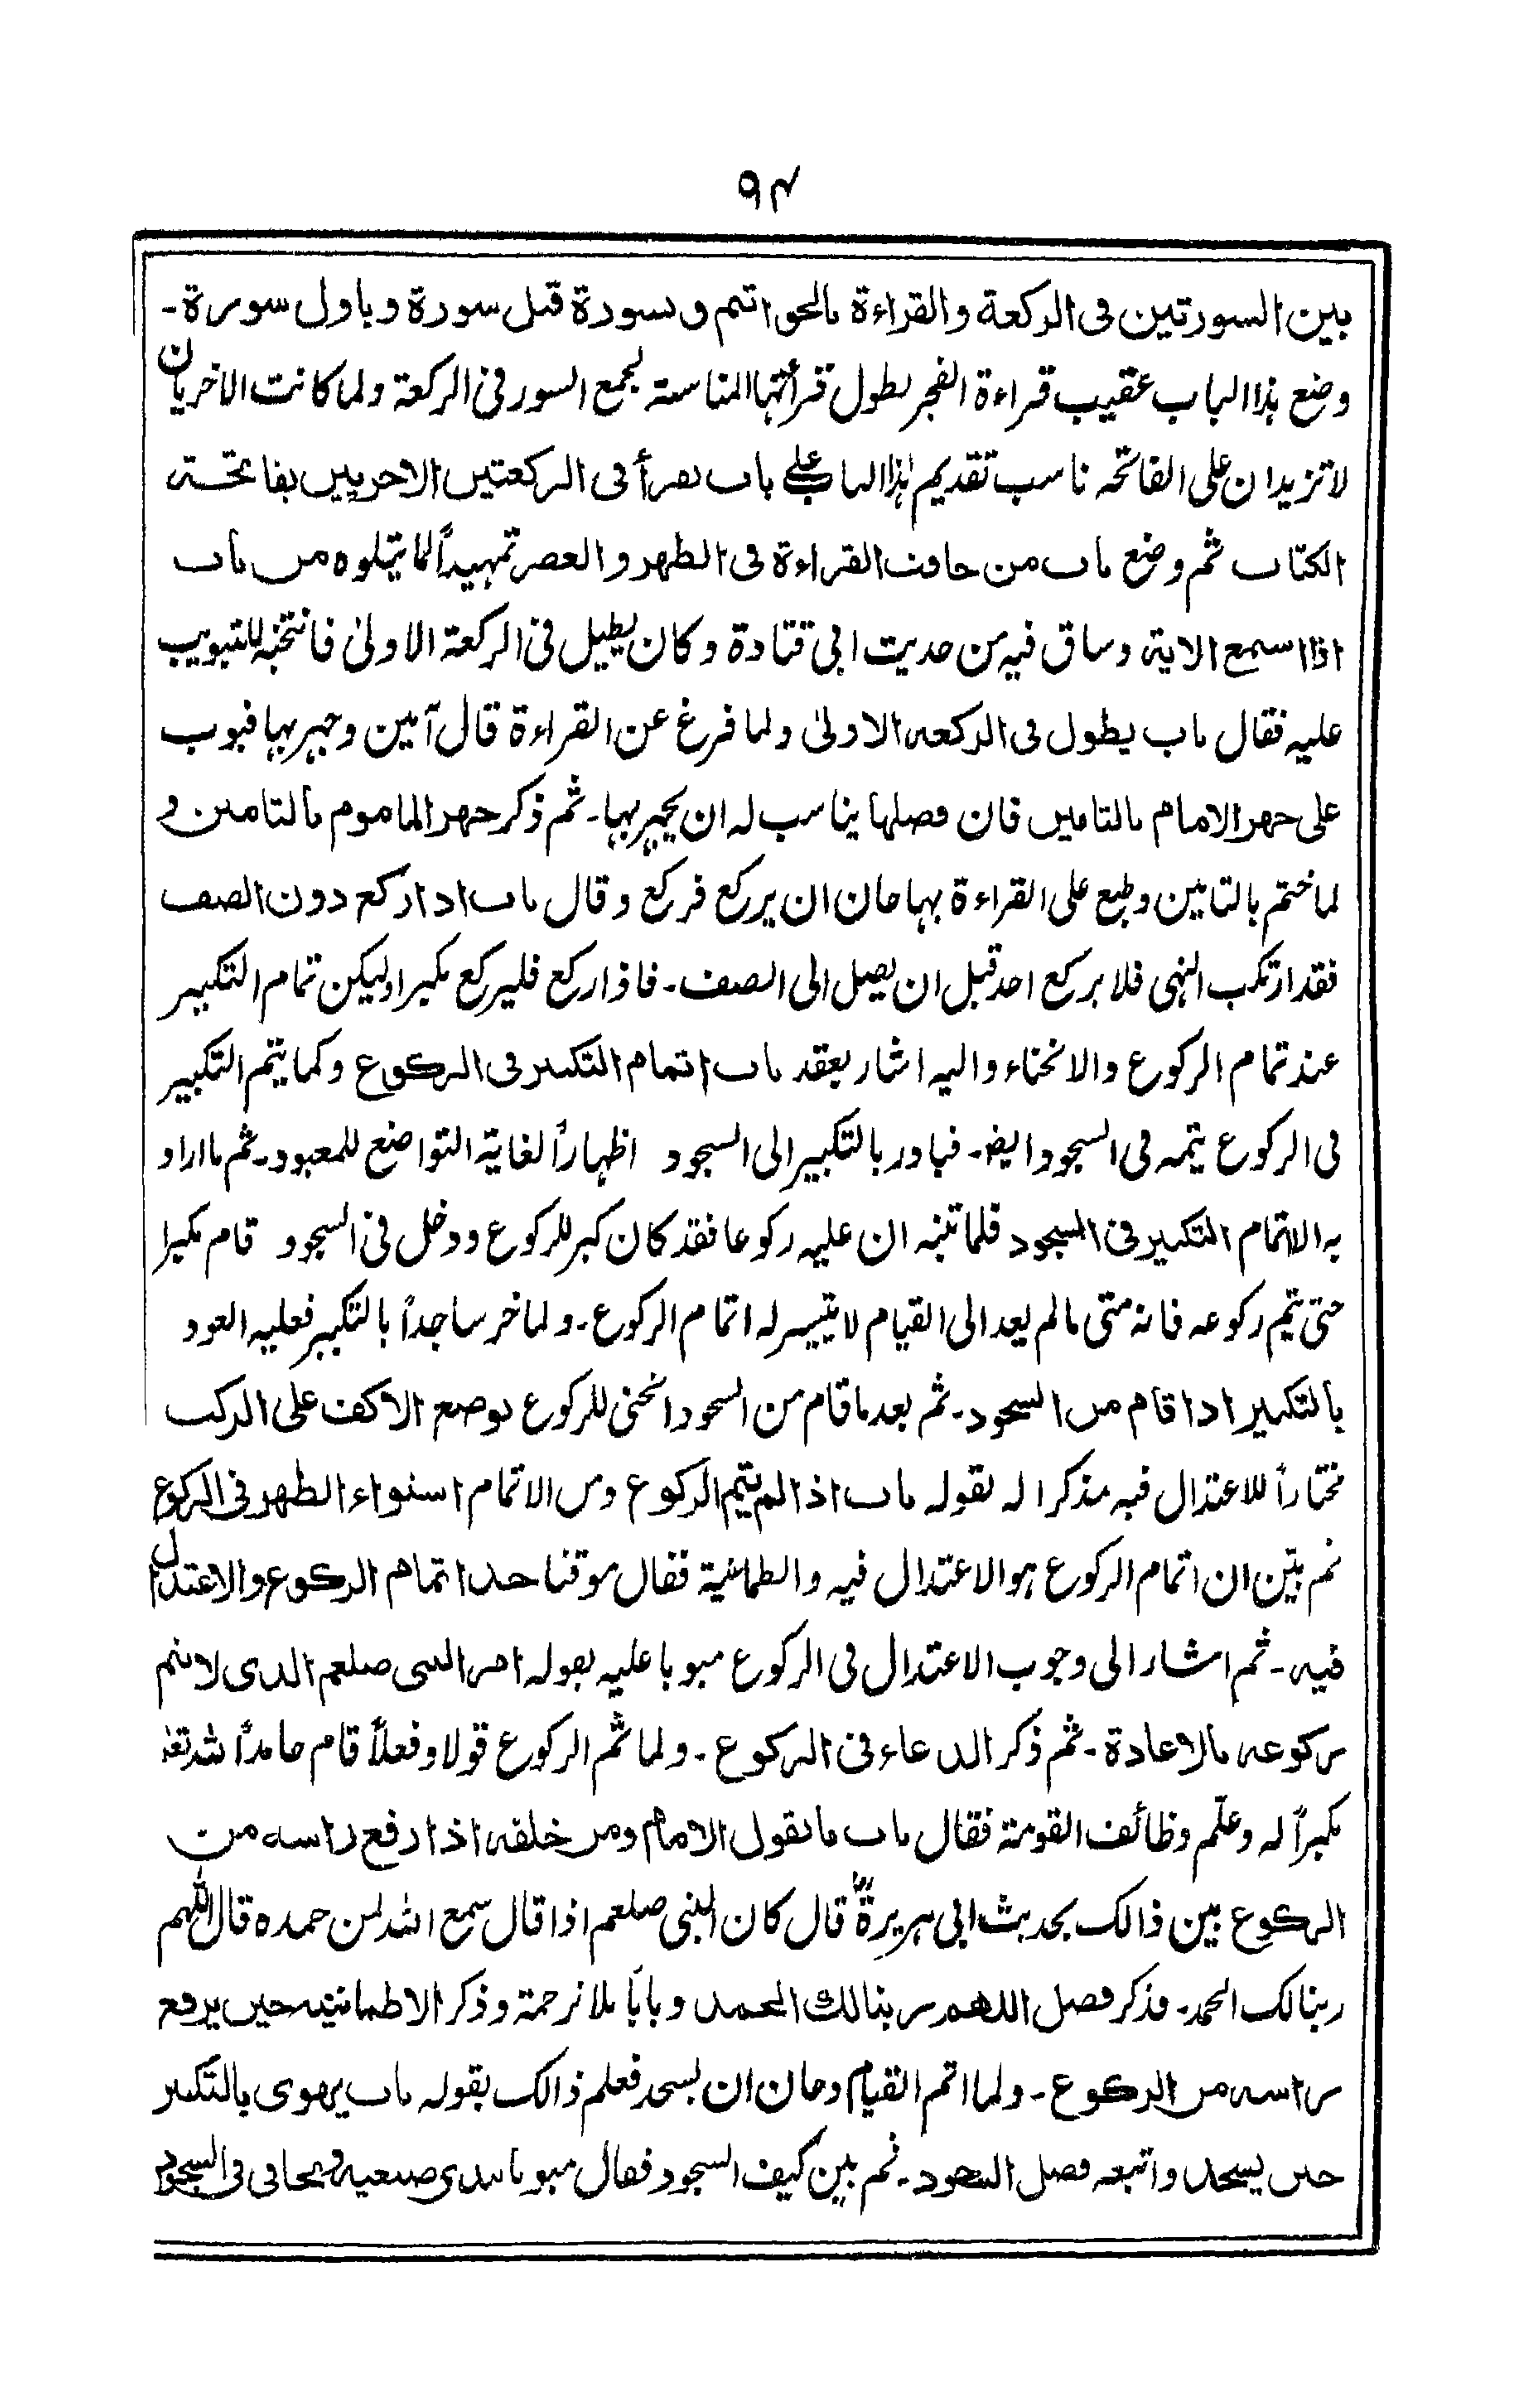 ٩٤
بين السورتين فى الركعة والقراءة بالخواتيم وبسورة قبل سورة وباول سورة۔
وضع ہذا الباب عقيب قراءة الفجر لطول قرأتہا المناسبة لجمع السور فى الركعة ولما كانت الاخريان
لا تزيدان على الفاتحہ ناسب تقديم ہذا الباب على باب يقرأ فى الركعتين الاخريين بفاتحة
الكتاب ثم وضع باب من خافت القراءة فى الظهر والعصر تمہيداً لما يتلوه من باب
اذا اسمع الاية وساق فيہ من حديث ابى قتادة وكان يطيل فى الركعة الاولىٰ فانتخبہ للتبويب
عليہ فقال باب يطول فى الركعة الاولىٰ ولما فرغ عن القراءة قال آمين وجہر بہا فبوب
على جهر الامام بالتامين فان فصلها يناسب لہ ان يجہر بہا۔ ثم ذكر جهر الماموم بالتامين و
لما ختم بالتامين وطبع على القراءة بہا حان ان يركع فركع وقال باب اذا ركع دون الصف
فقد ارتكب النہى فلا يركع احد قبل ان يصل الى الصف۔ فاذا ركع فليركع مكبرا وليكن تمام التكبير
عند تمام الركوع والانحناء واليہ اشار بعقد باب اتمام التكبير فى الركوع وكما يتم التكبير
فى الركوع يتمہ فى السجود ايضا۔ فبادر بالتكبير الى السجود اظہاراً لغاية التواضع للمعبود۔ ثم ما اراد
بہ الاتمام التكبير فى السجود فلما تنبہ ان عليہ ركوعا فقد كان كبر للركوع ودخل فى السجود قام مكبرا
حتى يتم ركوعہ فانہ متى ما لم يعد الى القيام لا يتيسر لہ اتمام الركوع۔ ولما خر ساجداً بالتكبير فعليہ العود
بالتكبير اذا قام من السجود۔ ثم بعد ما قام من السجود انحنى للركوع بوضع الاكف على الركب
مختاراً للاعتدال فيہ مذكرا لہ بقولہ باب اذا لم يتم الركوع ومن الاتمام استواء الظهر فى الركوع
ثم بيّن ان اتمام الركوع ہو الاعتدال فيہ والطمانية فقال موقتا حد اتمام الركوع والاعتدال
فيہ۔ ثم اشار الى وجوب الاعتدال فى الركوع مبوبا عليہ بقولہ امر النبى صلعم الذى لا يتم
ركوعہ بالاعادة۔ ثم ذكر الدعاء فى الركوع۔ ولما تم الركوع قولا وفعلاً قام حامداً للہ تعالىٰ
مكبراً لہ وعلّم وظائف القومة فقال باب ما يقول الامام ومن خلفه اذا رفع راسه من
الركوع بين ذالك بحديث ابى ہريرةؓ قال كان النبى صلعم اذا قال سمع اللہ لمن حمده قال اللہم
ربنا لك الحمد۔ فذكر فضل اللهم ربنا لك الحمد وباباً بلا ترجمة وذكر الاطمانينہ حين يرفع
راسه من الركوع۔ ولما اتم القيام وحان ان يسجد فعلم ذالك بقولہ باب يهوى بالتكبير
حين يسجد واتبعہ فضل السجود۔ ثم بين كيف السجود فقال مبوبا يبدى ضبعيه ويجافى فى السجود